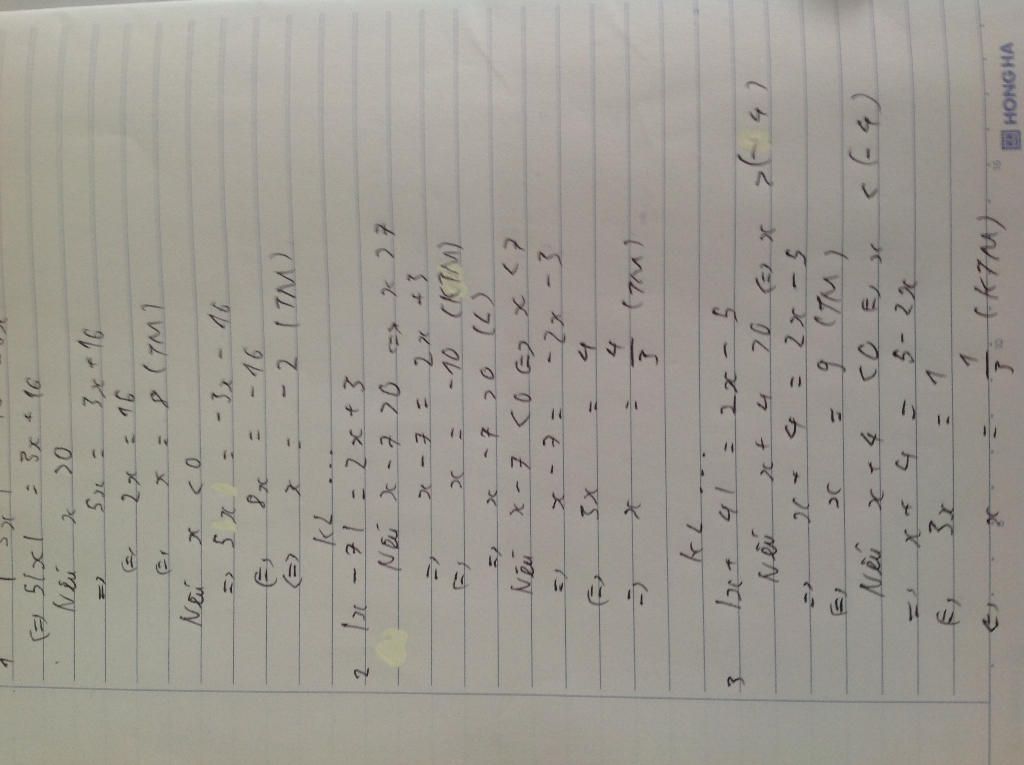 (=) 5|x| = 3x + 16
Nếu x > 0
=> 5x = 3x + 16
(=) 2x = 16
(=) x = 8 (TM)
Nếu x < 0
=> 5x = -3x - 16
(=) 8x = -16
(=) x = -2 (TM)
KL ...
2 |x - 7| = 2x + 3
Nếu x - 7 > 0 <=> x > 7
=> x - 7 = 2x + 3
(=) x = -10 (KTM)
=> x - 7 > 0 (L)
Nếu x - 7 < 0 (=) x < 7
=> x - 7 = -2x - 3
(=) 3x = 4
=> x = 4/3 (TM)
KL ...
3 |x + 4| = 2x - 5
Nếu x + 4 > 0 (=) x > (-4)
=> x + 4 = 2x - 5
(=) x = 9 (TM)
Nếu x + 4 < 0 (=) x < (-4)
=> x + 4 = 5 - 2x
(=) 3x = 1
(=) x = 1/3 (KTM)
HONG HA